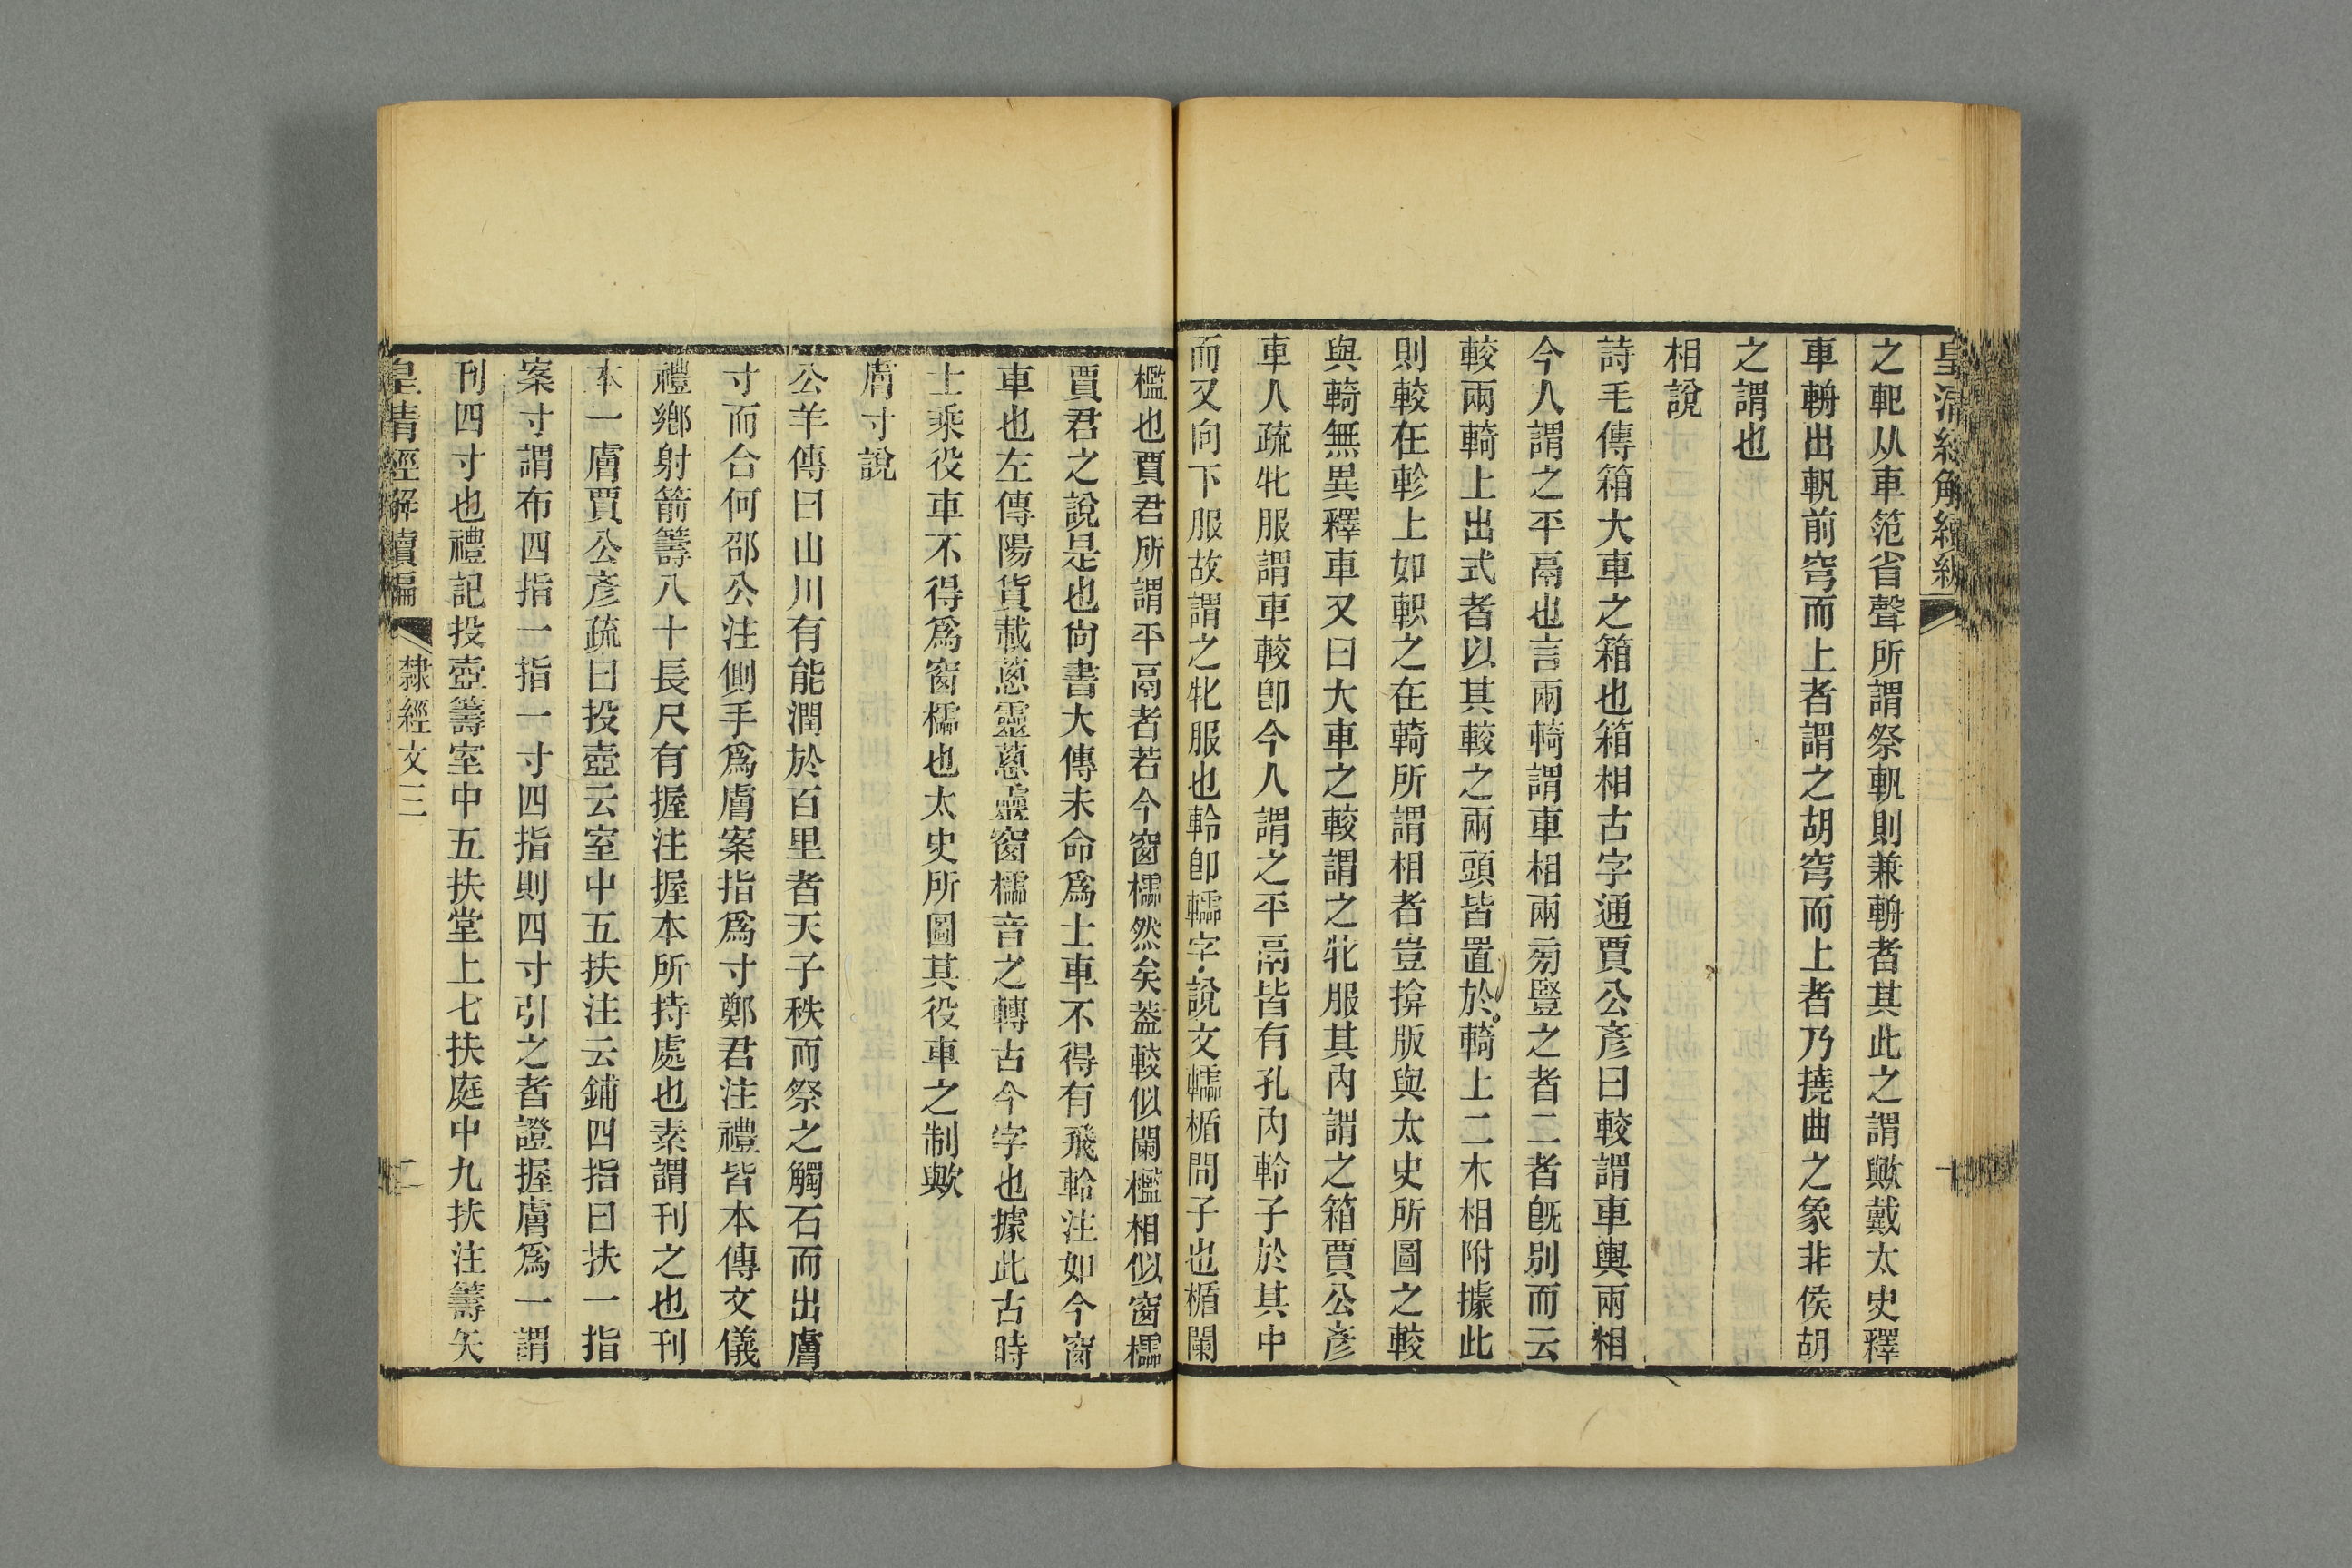 皇清經解續編
之軓从車笵省聲所謂祭軓則兼輈者其此之謂歟戴太史釋
車輈出軓前穹而上者謂之胡穹而上者乃撓曲之象非侯胡
之謂也
相說
詩毛傳箱大車之箱也箱相古字通賈公彥曰較謂車輿兩相
今人謂之平鬲也言兩輢謂車相兩旁豎之者二者旣别而云
較兩輢上出式者以其較之兩頭皆置於輢上二木相附據此
則較在軫上如軹之在輢所謂相者豈揜版與太史所圖之較
與輢無異釋車又曰大車之較謂之牝服其內謂之箱賈公彥
車人疏牝服謂車較卽今人謂之平鬲皆有孔內軨子於其中
而又向下服故謂之牝服也軨卽轜字說文轜楯間子也楯闌
檻也賈君所謂平鬲者若今窗櫺然矣葢較似闌檻相似窗櫺
賈君之說是也尙書大傳未命爲士車不得有飛軨注如今窗
車也左傳陽貨載蔥靈蔥靈窗櫺音之轉古今字也據此古時
士乘役車不得爲窗櫺也太史所圖其役車之制歟
膚寸說
公羊傳曰山川有能潤於百里者天子秩而祭之觸石而出膚
寸而合何邵公注側手爲膚案指爲寸鄭君注禮皆本傳文儀
禮鄉射箭籌八十長尺有握注握本所持處也素謂刊之也刊
本一膚賈公彥疏曰投壺云室中五扶注云鋪四指曰扶一指
案寸謂布四指一指一寸四指則四寸引之者證握膚爲一謂
刊四寸也禮記投壺籌室中五扶堂上七扶庭中九扶注籌矢
皇清經解續編
隸經文三
二